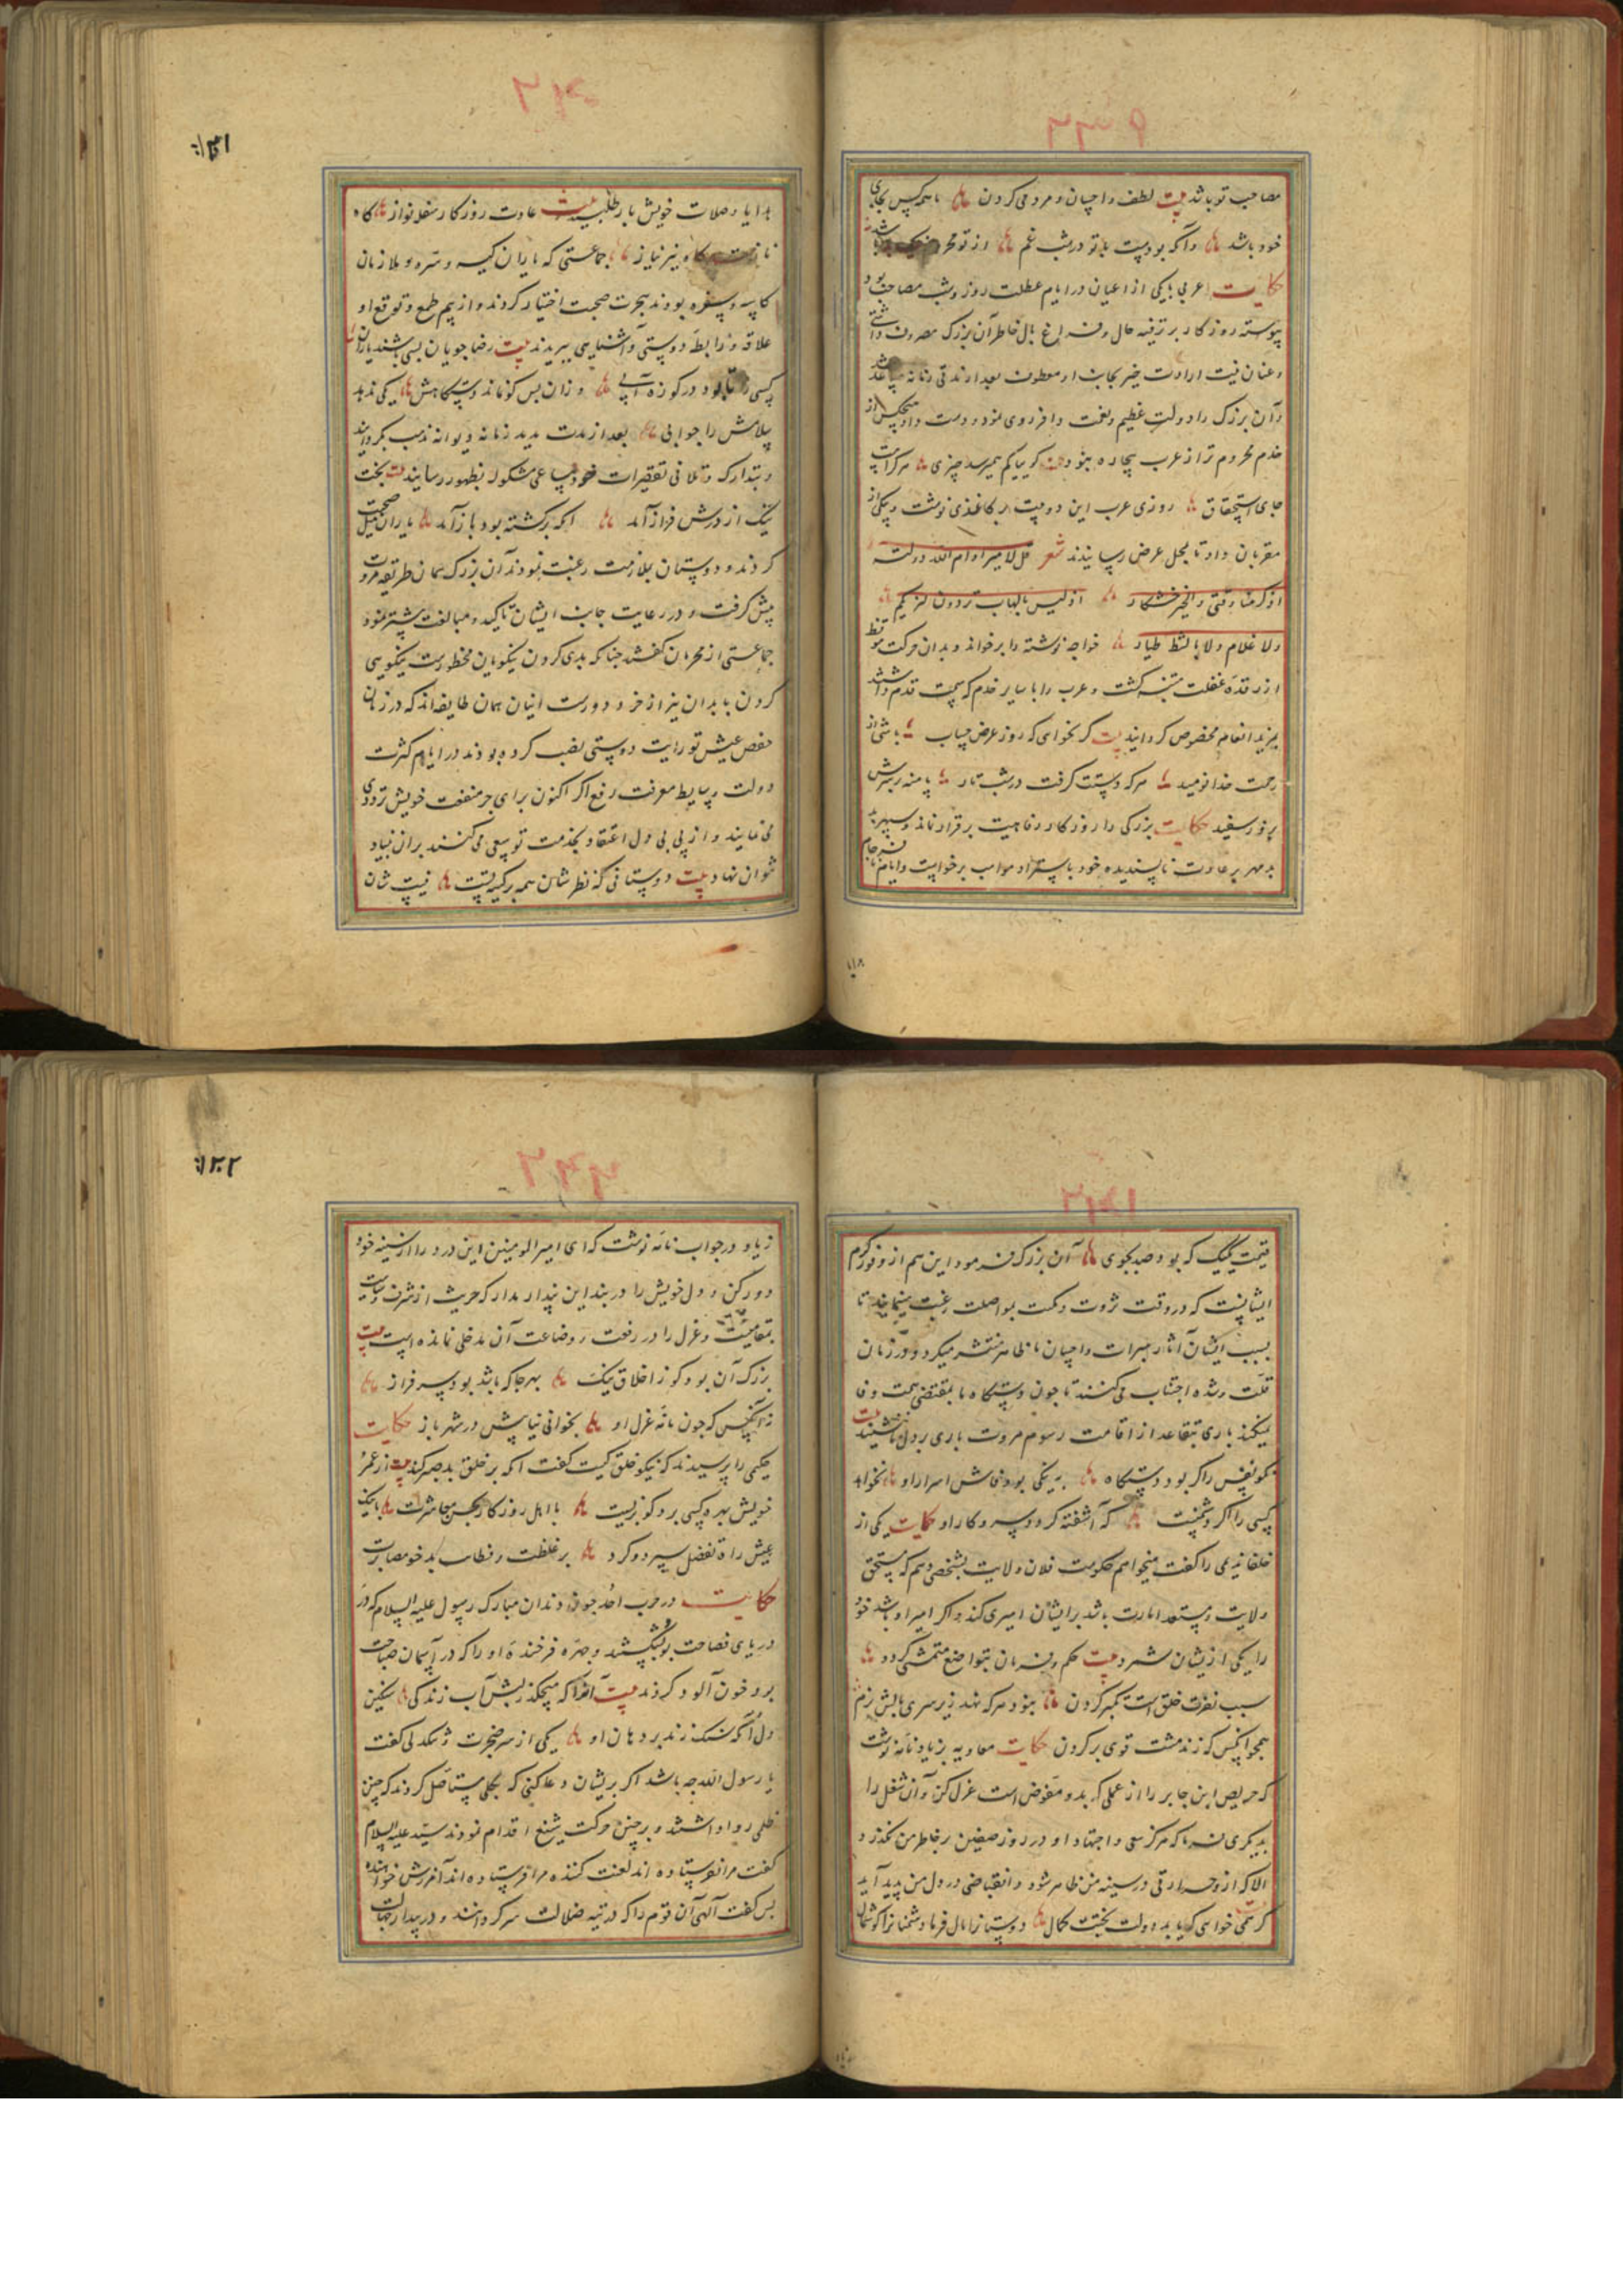 مصاحب تو باشد بیت لطف و احسان و مردمی کردن با همه کس بجای
خود باشد وآنکه بودست با تو در شب غم از تو محروم
حکایت اعربی با یکی از اعیان در ایام عطلت روز و شب مصاحب بود
پیوسته روزکار بر ترفیه حال و فراغ بال خاطر آن بزرک مصروف داشتی
و عنان نیت ارادت خیر بجانب او معطوف بعد از مدتی زمانه مساعد شد
و آن بزرک را دولت عظیم و نعمت وافر روی نمود و دست داد هیچکس از
خدم محروم تر از عرب بیچاره نبود
جای استحقاق روزی عرب این دو بیت بر کاغذی نوشت و یکی از
مقربان داد تا بمحل عرض رسانیدند شعر قل للامیر ادام الله دولته
ولا غلام ولا خواجه نوشته را برخواند و بدان حرکت
از رقده غفلت متنبه کشت و عرب را با سایر خدم که سمت قدم داشتند
بمزید انعام مخصوص کردانید بیت کر نخواهی که روز عرض حساب باشی از
رحمت خدا نومید هرکه دستت کرفت در شب تار پا منه بر سرش
بروز سفید حکایت بزرکی را روزکار رفاهیت برقرار نماند و سپهر
بدمهر بر عادت ناپسندیده خود باسترداد مواهب برخواست و ایام
هدایا و صلات خویش باز طلبید بیت عادت روزکار سفله نواز کاه
نازست و کاه نیز نیاز جماعتی که یاران کیسه و سره و ملازمان
کاسه و سفره بودند هجرت صحبت اختیار کردند و از بیم طمع و توقع او
علاقه و رابطه دوستی و آشنایی ببریدند بیت رضاجویان بسی باشند یاران
کسی را تا بود در کوزه آبی وزان پس کو نماند دستکاهش یکی ندهد
سلامش را جوابی بعد از مدت مدید زمانه دیوانه مذهب بکردانید
و بتدارک و تلافی تقصیرات خود مساعی مشکور بظهور رسانید بیت بخت
نیک از درش فراز آمد آنکه برکشته بود باز آمد یاران میل صحبت
کردند و دوستان بملازمت رغبت نمودند آن بزرک همان طریقه مروت
پیش کرفت و در رعایت جانب ایشان تاکید و مبالغت بیشتر نمود
جماعتی از محرمان کفتند چنانکه بدی کردن نیکویان محظورست نیکویی
کردن با بدان نیز از خرد دورست اینان همان طایفه‌اند که در زمان
خفض عیش تو رایت دوستی نصب کرده بودند در ایام کثرت
دولت وسایط معرفت رفع اکر اکنون برای جر منفعت خویش ترددی
می نمایند و از پی بی دل اعتقاد بخدمت تو سعی می کنند بران بنیاد
نتوان نهاد بیت دوستانی که نظرشان همه بر کیسه تست نیست شان
قیمت یکیک که بود صد بجوی آن بزرک فرمود این هم از وفور کرم
ایشانست که در وقت ثروت و مکنت بمواصلت رغبت مینمایند تا
بسبب ایشان آثار مبرات و احسان ما ظاهر و منتشر میکردد و در زمان
قلت و شده اجتناب می کنند تا چون دستکاه ما بمقتضی همت وفا
نمیکند باری تقاعد از اقامت رسوم مروت باری بر دل ما ننشیند بیت
نکونفس را کر بود دستکاه به نیکی بود فاش اسرار او نخواهد
کسی را اکر دشمنیست که آشفته کردد سر و کار او حکایت یکی از
خلفا ندیمی را کفت میخواهم حکومت فلان ولایت بشخصی دهم که مستحق
ولایت و مستعد امارت باشد بر ایشان امیری کند و اکر امیر او باشد خود
را یکی از یشان شمرد بیت حکم و فرمان بتواضع متمشی کردد
سبب نفرت خلق است تکبر کردن نبود هرکه نهد زیر سری بالش نرم
همچو آنکس که زند مشت قوی بر کردن حکایت معاویه بزیاد نامه نوشت
که حریص ابن جابر را از عملی که بدو مفوض است عزل کن و آن شغل را
بدیکری فرما که هرکز سعی و اجتهاد او در روز صفین بر خاطر من نکذرد
الا که از و حرارتی در سینه من ظاهر شود و انقباضی در دل من پدید آید
کر همی خواهی که یابد دولت بختت کمال دوستانرا مال فرما و دشمنانرا کوشمال
زیاد در جواب نامه نوشت که ای امیر المومنین این درد را از سینه خود
دور کن و دل خویش را در بند این پندار مدار که حریث از شرف و سیاست
بمقامیست که عزل را در رفعت و وضاعت آن مدخلی نمانده است بیت
بزرک آن بود کو ز اخلاق نیک بهر جا که باشد بود سرفراز
نه آنکس که چون نامه عزل او بخوانی نیاید بیش در شهر باز حکایت
حکیمی را پرسیدند که نیکوخلق کیست کفت آنکه بر خلق بد صبر کند بیت از عمر
خویش بهره کسی برد کو بزیست با اهل روزکار بحسن معاشرت با نیک
عیش راه تفضل سپرد و کرد بر غلظت و فظاظت بدخو مصابرت
حکایت در حرب احد چون دندان مبارک رسول علیه السلام که در
دریای فصاحت بود بشکستند و چهره فرخنده او را که در آسمان صباحت
بود خون آلود کردند بیت آنرا که میچکد ز لبش آب زندکی سنکین
دل آنکه سنک زند بر دهان او یکی از سر ضجرت و تنکدلی کفت
یا رسول الله چه باشد اکر بریشان دعا کنی که بکلی مستاصل کردند که چنین
ظلمی روا داشتند و بر چنین حرکت شنیع اقدام نمودند سید علیه السلام
کفت مرا نفرستاده اند لعنت کننده مرا فرستاده اند آمرزش خواهنده
پس کفت الهی آن قوم را که در تیه ضلالت سرکردانند و در بیدا جهالت